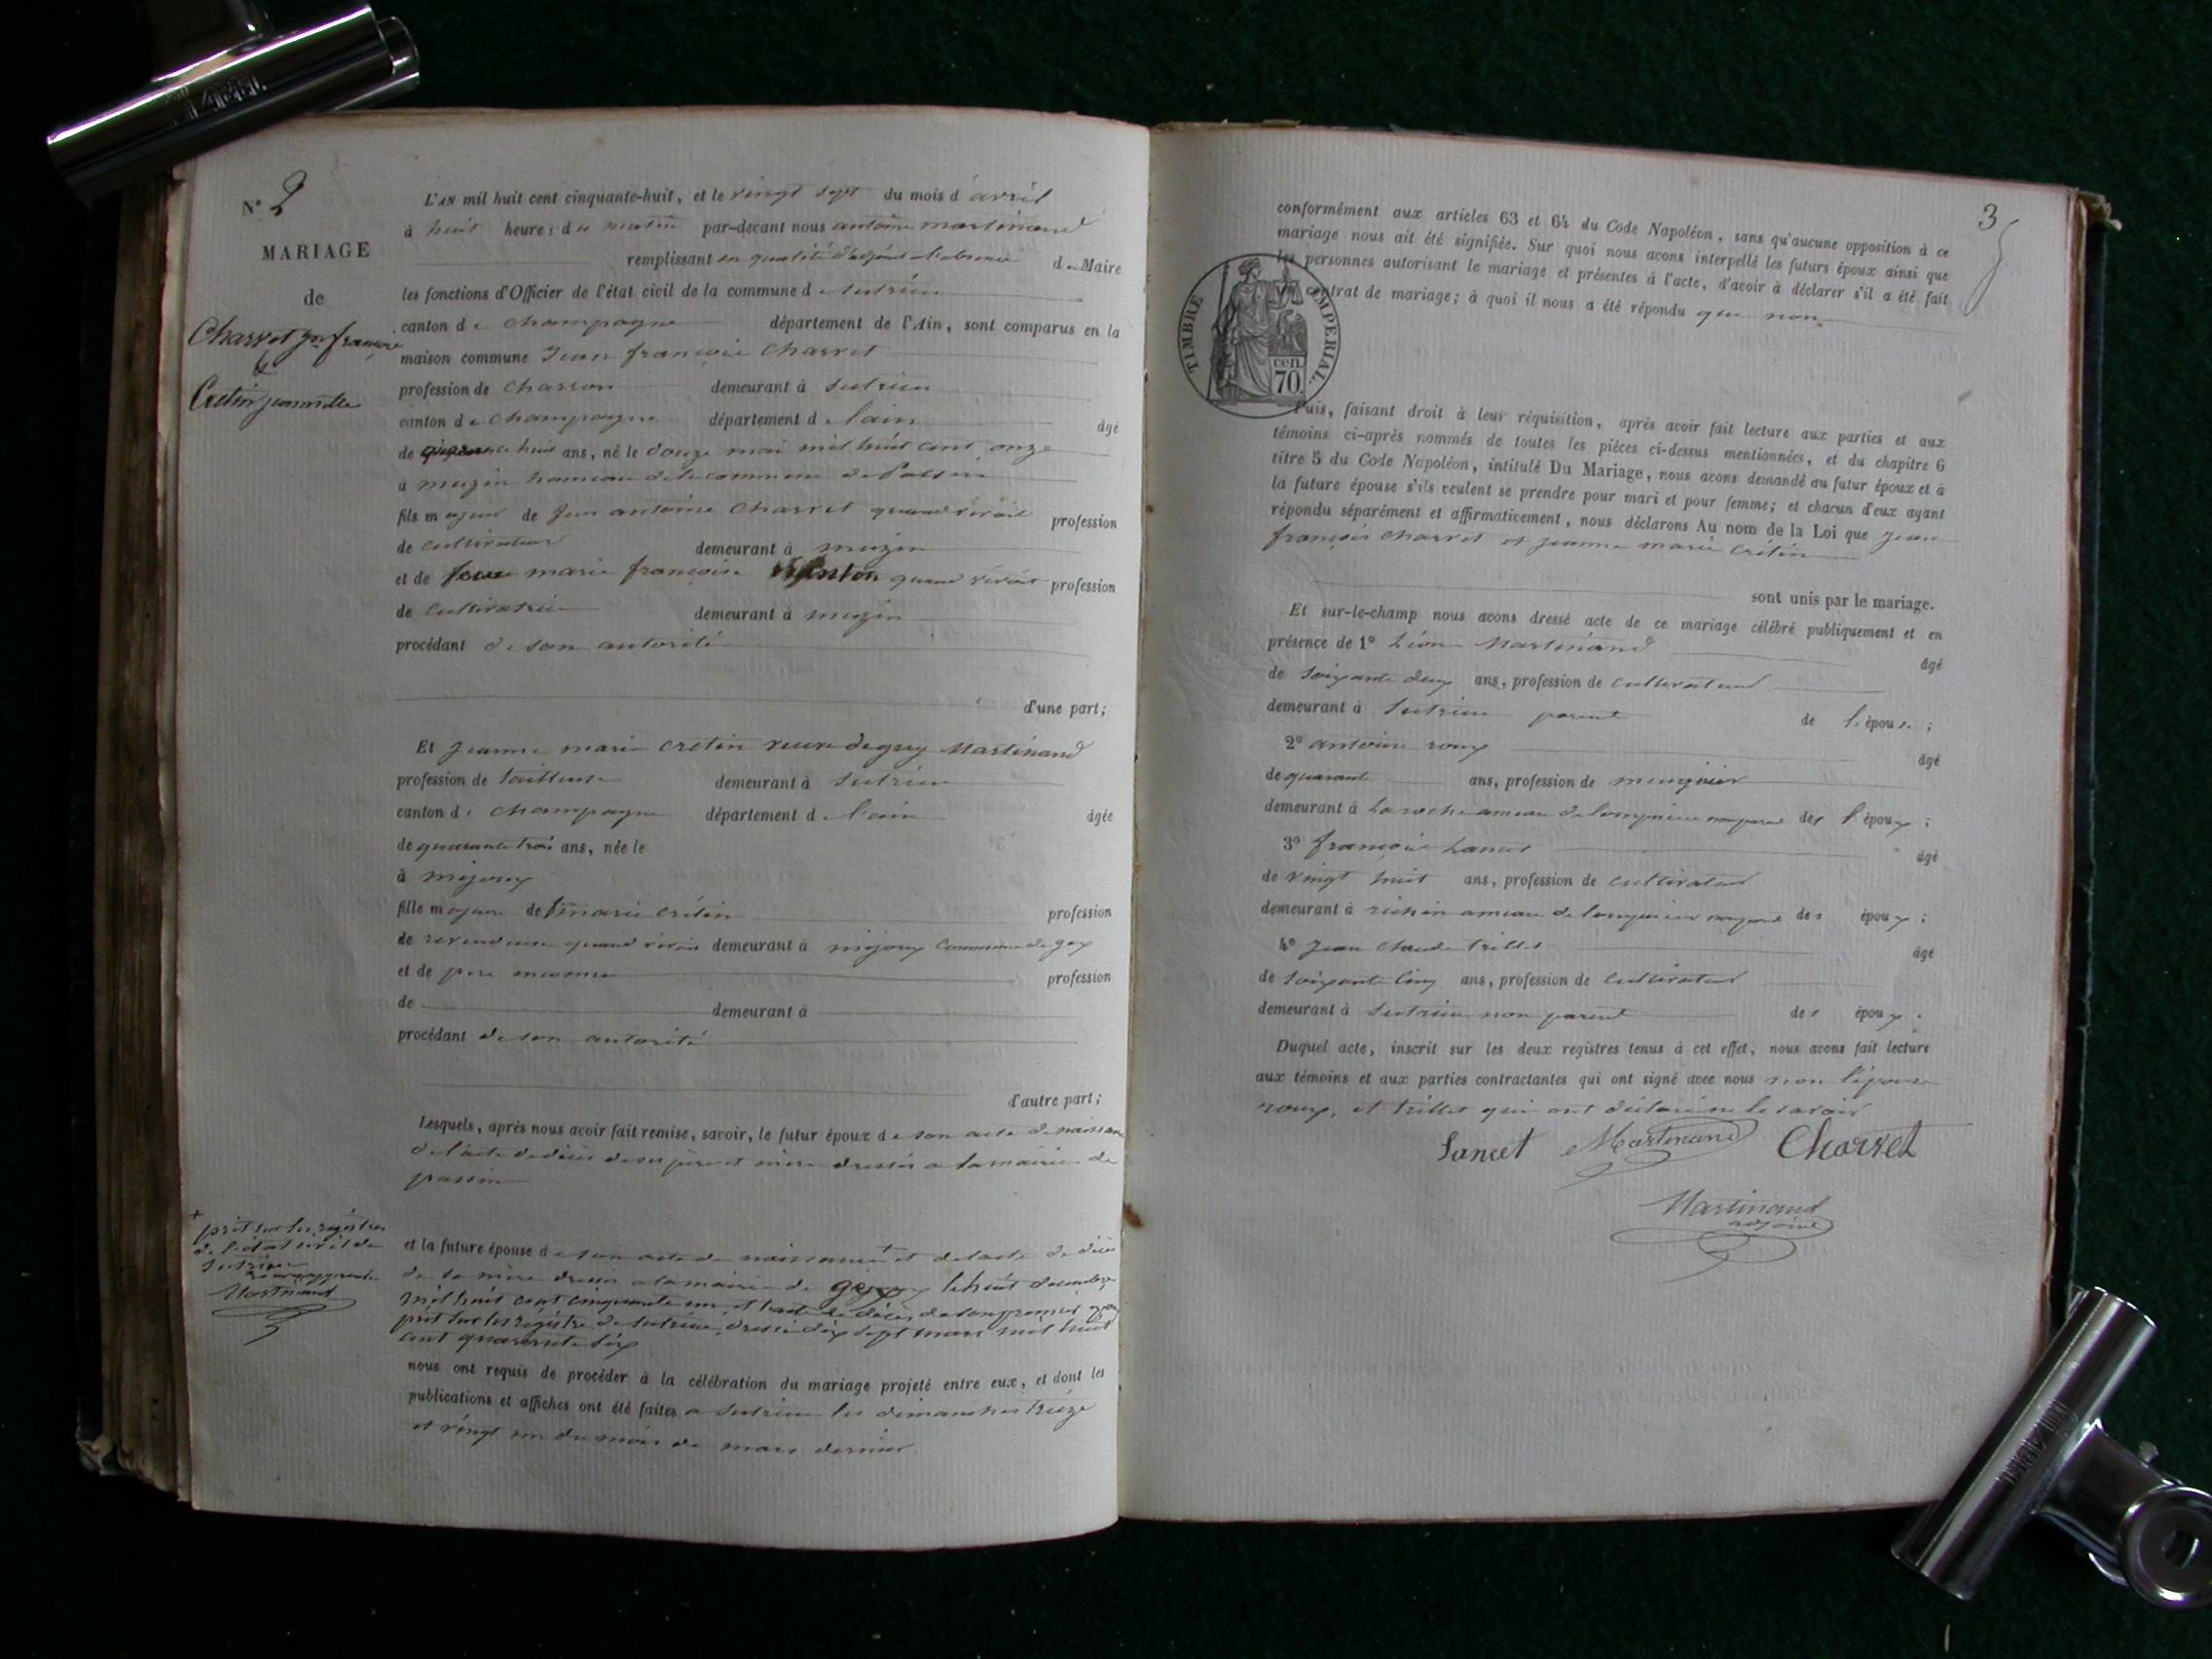 N° 2
MARIAGE
de
Charvet Jn françois
&
Cretin jeannette
L'AN mil huit cent cinquante-huit, et le vingt sept du mois d'avril
à huit heures du matin par-devant nous antoine martinand
remplissant en qualité d'adjoint de Maire
les fonctions d'Officier de l'état civil de la commune de sutrieu
canton de champagne département de l'Ain, sont comparus en la
maison commune Jean françois Charvet
profession de charron demeurant à sutrieu
canton de champagne département de l'ain âgé
de huit ans, né le douze mai mil huit cent onze
à muzin hameau de la commune de
fils majeur de Jean antoine Charvet quand vivait profession
de cultivateur demeurant à muzin
et de marie françoise quand vivait profession
de cultivatrice demeurant à muzin
procédant de son autorité
d'une part;
Et Jeanne marie cretin veuve de guy Martinand
profession de tailleuse demeurant à sutrieu
canton de champagne département de l'ain âgée
de quarante trois ans, née le
à mijoux
fille majeure de marie crétin profession
de revendeuse quand vivait demeurant à mijoux commune de gex
et de père inconnu profession
de demeurant à
procédant de son autorité
d'autre part;
Lesquels, après nous avoir fait remise, savoir, le futur époux de son acte de naissance
de l'acte de décès de ses père et mère dressés a la mairie de
passin
et la future épouse de son acte de naissance + et de l'acte de décès
de sa mère dressé a la mairie de le huit decembre
mil huit cent cinquante un, et l'acte de décès de son premier époux
prit sur les régistre de sutrieu, dressé dix sept mars mil huit
cent quarante six
+ prit sur les régistres
de l'état civil de
sutrieu
Martinand
nous ont requis de procéder à la célébration du mariage projeté entre eux, et dont les
publications et affiches ont été faites a sutrieu les dimanches treize
et vingt un du mois de mars dernier
3
conformément aux articles 63 et 64 du Code Napoléon, sans qu'aucune opposition à ce
mariage nous ait été signifiée. Sur quoi nous avons interpellé les futurs époux ainsi que
les personnes autorisant le mariage et présentes à l'acte, d'avoir à déclarer s'il a été fait
contrat de mariage; à quoi il nous a été répondu que non
TIMBRE IMPERIAL.
cen.
70
Puis, faisant droit à leur réquisition, après avoir fait lecture aux parties et aux
témoins ci-après nommés de toutes les pièces ci-dessus mentionnées, et du chapitre 6
titre 5 du Code Napoléon, intitulé Du Mariage, nous avons demandé au futur époux et à
la future épouse s'ils veulent se prendre pour mari et pour femme; et chacun d'eux ayant
répondu séparément et affirmativement, nous déclarons Au nom de la Loi que Jean
françois charvet et jeanne marie crétin
sont unis par le mariage.
Et sur-le-champ nous avons dressé acte de ce mariage célébré publiquement et en
présence de 1° Léon Martinand âgé
de soixante deux ans, profession de cultivateur
demeurant à Sutrieu parent de l'épouse;
2° antoine roux âgé
de quarante ans, profession de meugnier
demeurant à Laroche ameau de des époux;
3° françois Lancet âgé
de vingt huit ans, profession de cultivateur
demeurant à ameau de des époux;
4° Jean Claude trillet âgé
de soixante cinq ans, profession de cultivateur
demeurant à Sutrieu non parent des époux.
Duquel acte, inscrit sur les deux registres tenus à cet effet, nous avons fait lecture
aux témoins et aux parties contractantes qui ont signé avec nous non l'épouse
roux, et trillet qui ont déclaré ne le savoir
Lancet Martinand Charvet
Martinand
adjoint